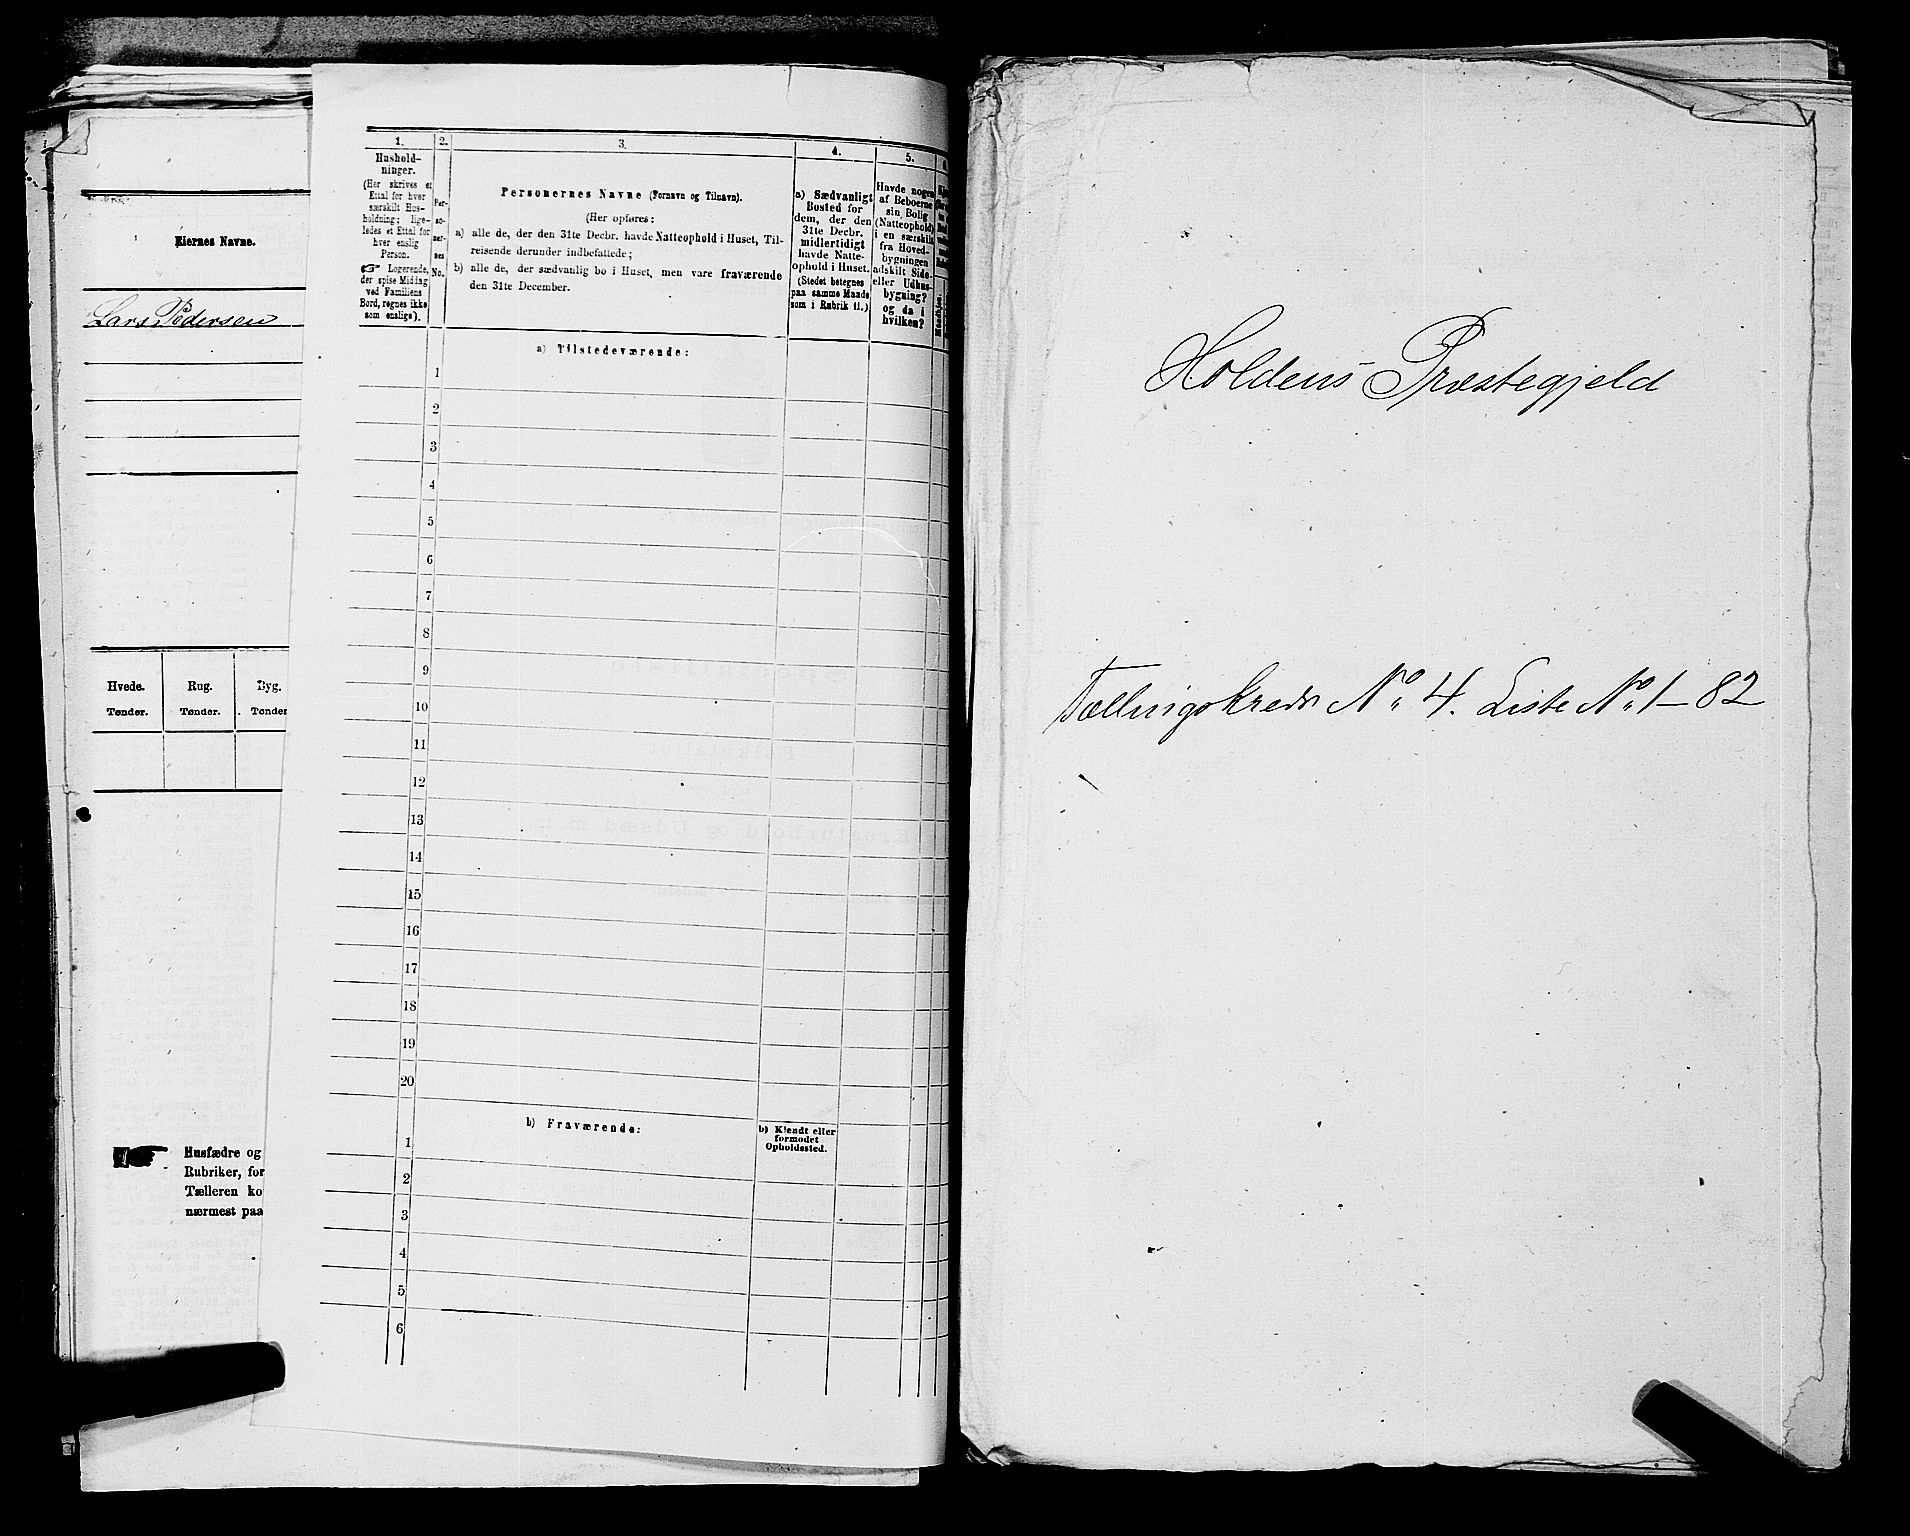 Eiernes Navne.
Lars Pedersen
Hvede. Rug. Byg.
Tønder. Tønder. Tønder
Husfædre og
Rubriker, for
Tælleren ko
nærmest paa
1. 2. 3. 4. 5.
Hushold-
ninger.
(Her skrives et
Ettal for hver
særskilt Hus-
holdning; lige-
ledes et Ettal for
hver enslig
Person.
☞ Logerende,
der spise Middag
ved Familiens
Bord, regnes ikke
som enslige).
Per-
so-
ner-
nes
No.
Personernes Navne (Fornavn og Tilnavn).
(Her opføres:
a) alle de, der den 31te Decbr. havde Natteophold i Huset, Til-
reisende derunder indbefattede;
b) alle de, der sædvanlig bo i Huset, men vare fraværende
den 31te December.
a) Sædvanligt
Bosted for
dem, der den
31te Decbr.
midlertidigt
havde Natte-
ophold i Huset.
(Stedet betegnes
paa samme Maade
som i Rubrik 11.)
Havde nogen
af Beboerne
sin Bolig
(Natteophold)
i en særskilt
fra Hoved-
bygningen
adskilt Side-
eller Udhus-
bygning?
og da i
hvilken?
a) Tilstedeværende:
1
2
3
4
5
6
7
8
9
10
11
12
13
14
15
16
17
18
19
20
b) Fraværende:
b) Kjendt eller
formodet
Opholdssted.
1
2
3
4
5
6
Holdens Præstegjeld
Tællingskreds No. 4. Liste No. 1-82